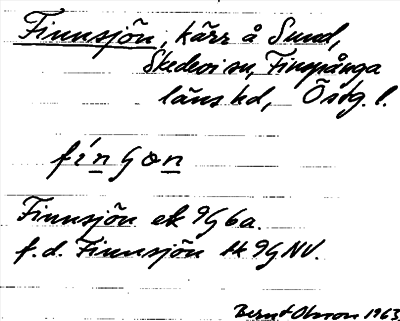 Finnsjön, kärr å Sund,
Skedevi sn, Finspånga
läns hd, Östg. l.
Finnsjön ek 9G6a.
f.d. Finnsjön 9GNV.
Bernt Olsson 1963